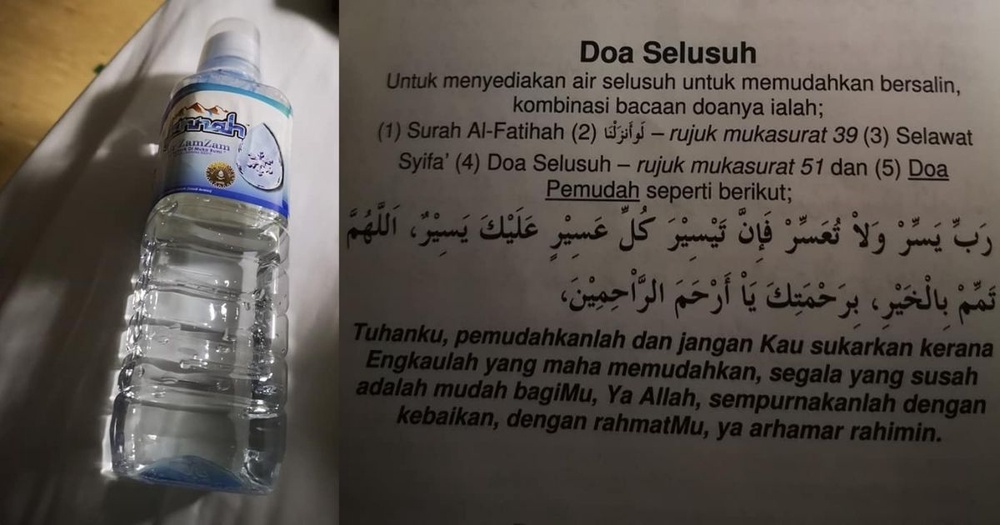 ZamZam
Doa Selusuh
Untuk menyediakan air selusuh untuk memudahkan bersalin,
kombinasi bacaan doanya ialah;
(1) Surah Al-Fatihah (2) لَوأَنزَلْنَا – rujuk mukasurat 39 (3) Selawat
Syifa’ (4) Doa Selusuh – rujuk mukasurat 51 dan (5) Doa
Pemudah seperti berikut;
رَبِّ يَسِّرْ وَلاْ تُعَسِّرْ فَإِنَّ تَيْسِيْرَ كُلِّ عَسِيْرٍ عَلَيْكَ يَسِيْرٌ، اَللَّهُمَّ
تَمِّمْ بِالْخَيْرِ، بِرَحْمَتِكَ يَاْ أَرْحَمَ الرَّاْحِمِيْنَ،
Tuhanku, pemudahkanlah dan jangan Kau sukarkan kerana
Engkaulah yang maha memudahkan, segala yang susah
adalah mudah bagiMu, Ya Allah, sempurnakanlah dengan
kebaikan, dengan rahmatMu, ya arhamar rahimin.